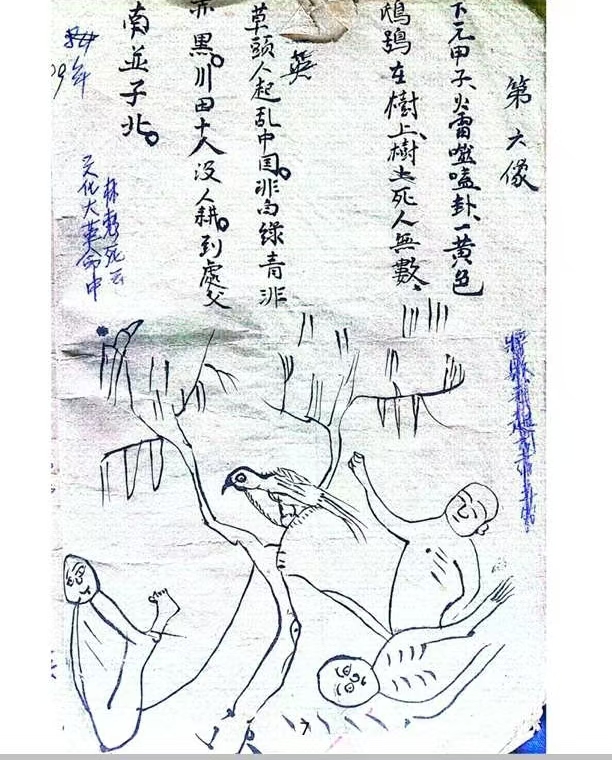 第六像
下元甲子、火雷噬嗑卦、一黄色
鴟鴞在樹上、樹上死人無數、
英
草頭人起乱中国。非白綠青非
赤黑。川田十人没人耕。到處父
南並子北。
林彪死云
文化大革命中
09年